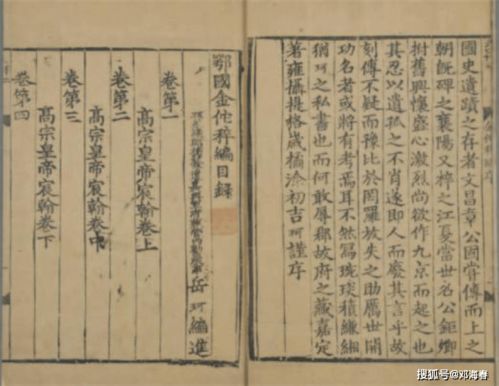 國史遺蹟之存者文昌章公囯嘗傳而上之
朝旣碑之襄陽又梓之江夏當世名公鉅卿
拊舊興懷盛心激烈尚欲作九京而起之也
其忍以遺孤之不肖遂即人而廢其言乎故
刻傳不疑而豫比於罔羅放失之助厲世閒
功名者或將有考焉耳不然寫琬琰積縑緗
猶珂之私書也而何敢辱秘故府之藏嘉定
著雍攝提格歲橘涂初吉珂謹序
鄂國金佗稡編目録
岳珂編進
卷第一
高宗皇帝宸翰卷上
卷第二
高宗皇帝宸翰卷中
卷第三
高宗皇帝宸翰卷下
卷第四
搜狐号@邓海春